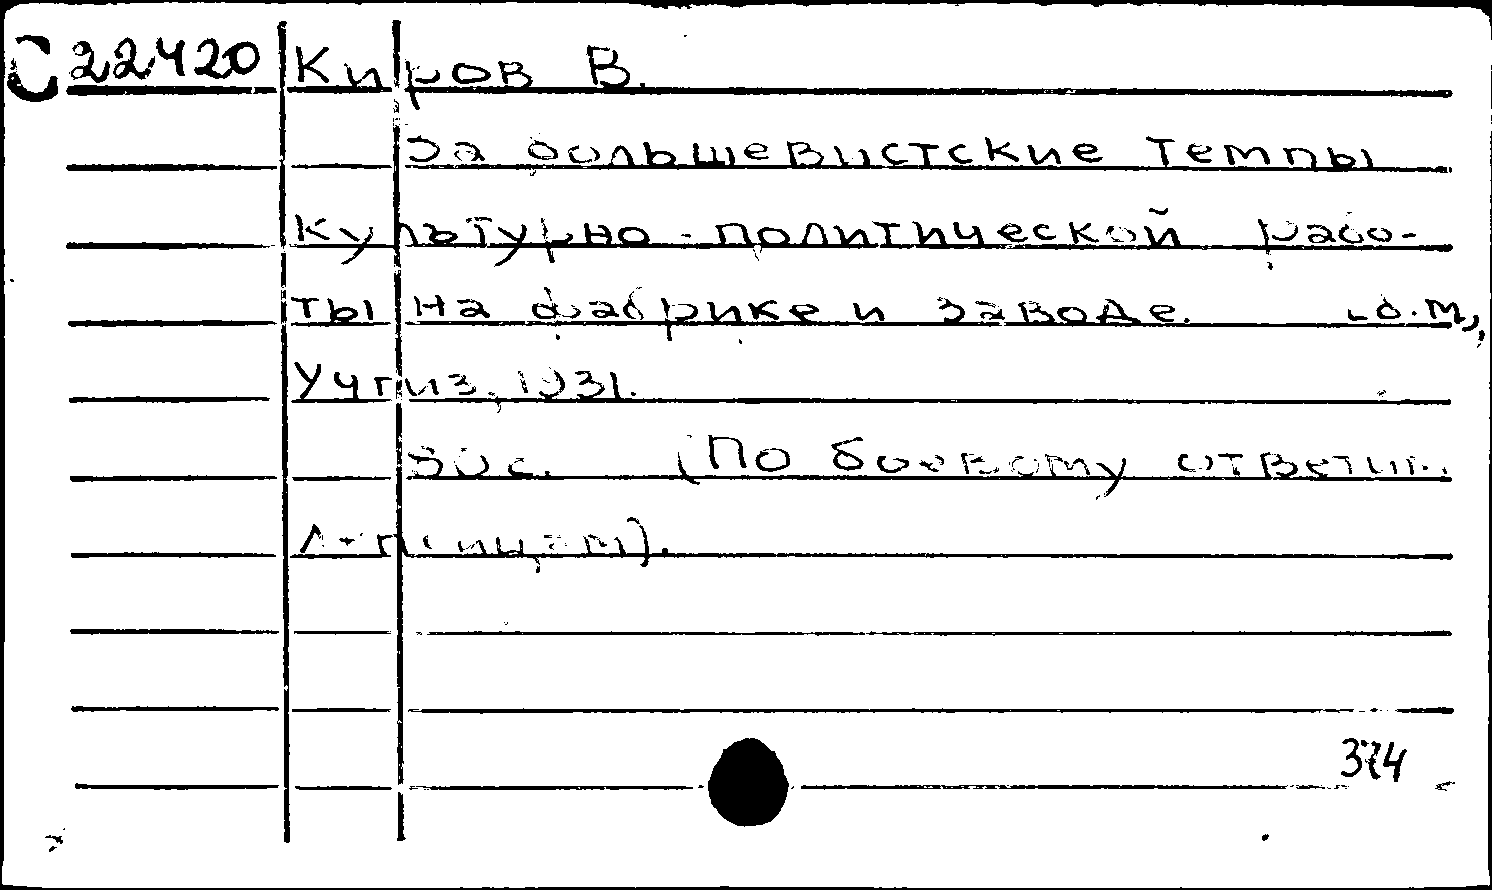 С 22420 Киров В.
За большевистские темпы
культурно-политической рабо-
ты на фабрике и заводе. б.м.,
Учгиз, 1931.
30 с. (По боевому ответим
374